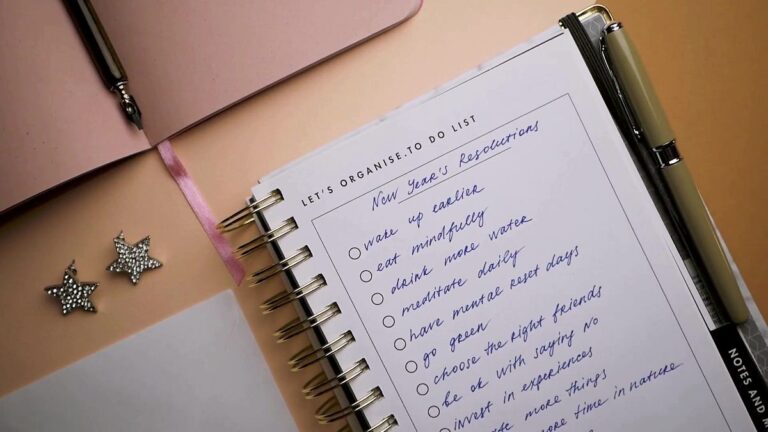 LET'S ORGANISE.TO DO LIST
New Year's Resolutions
wake up earlier
eat mindfully
drink more water
meditate daily
have mental reset days
go green
choose the right friends
be ok with saying NO
invest in experiences
more things
more time in nature
NOTES AND